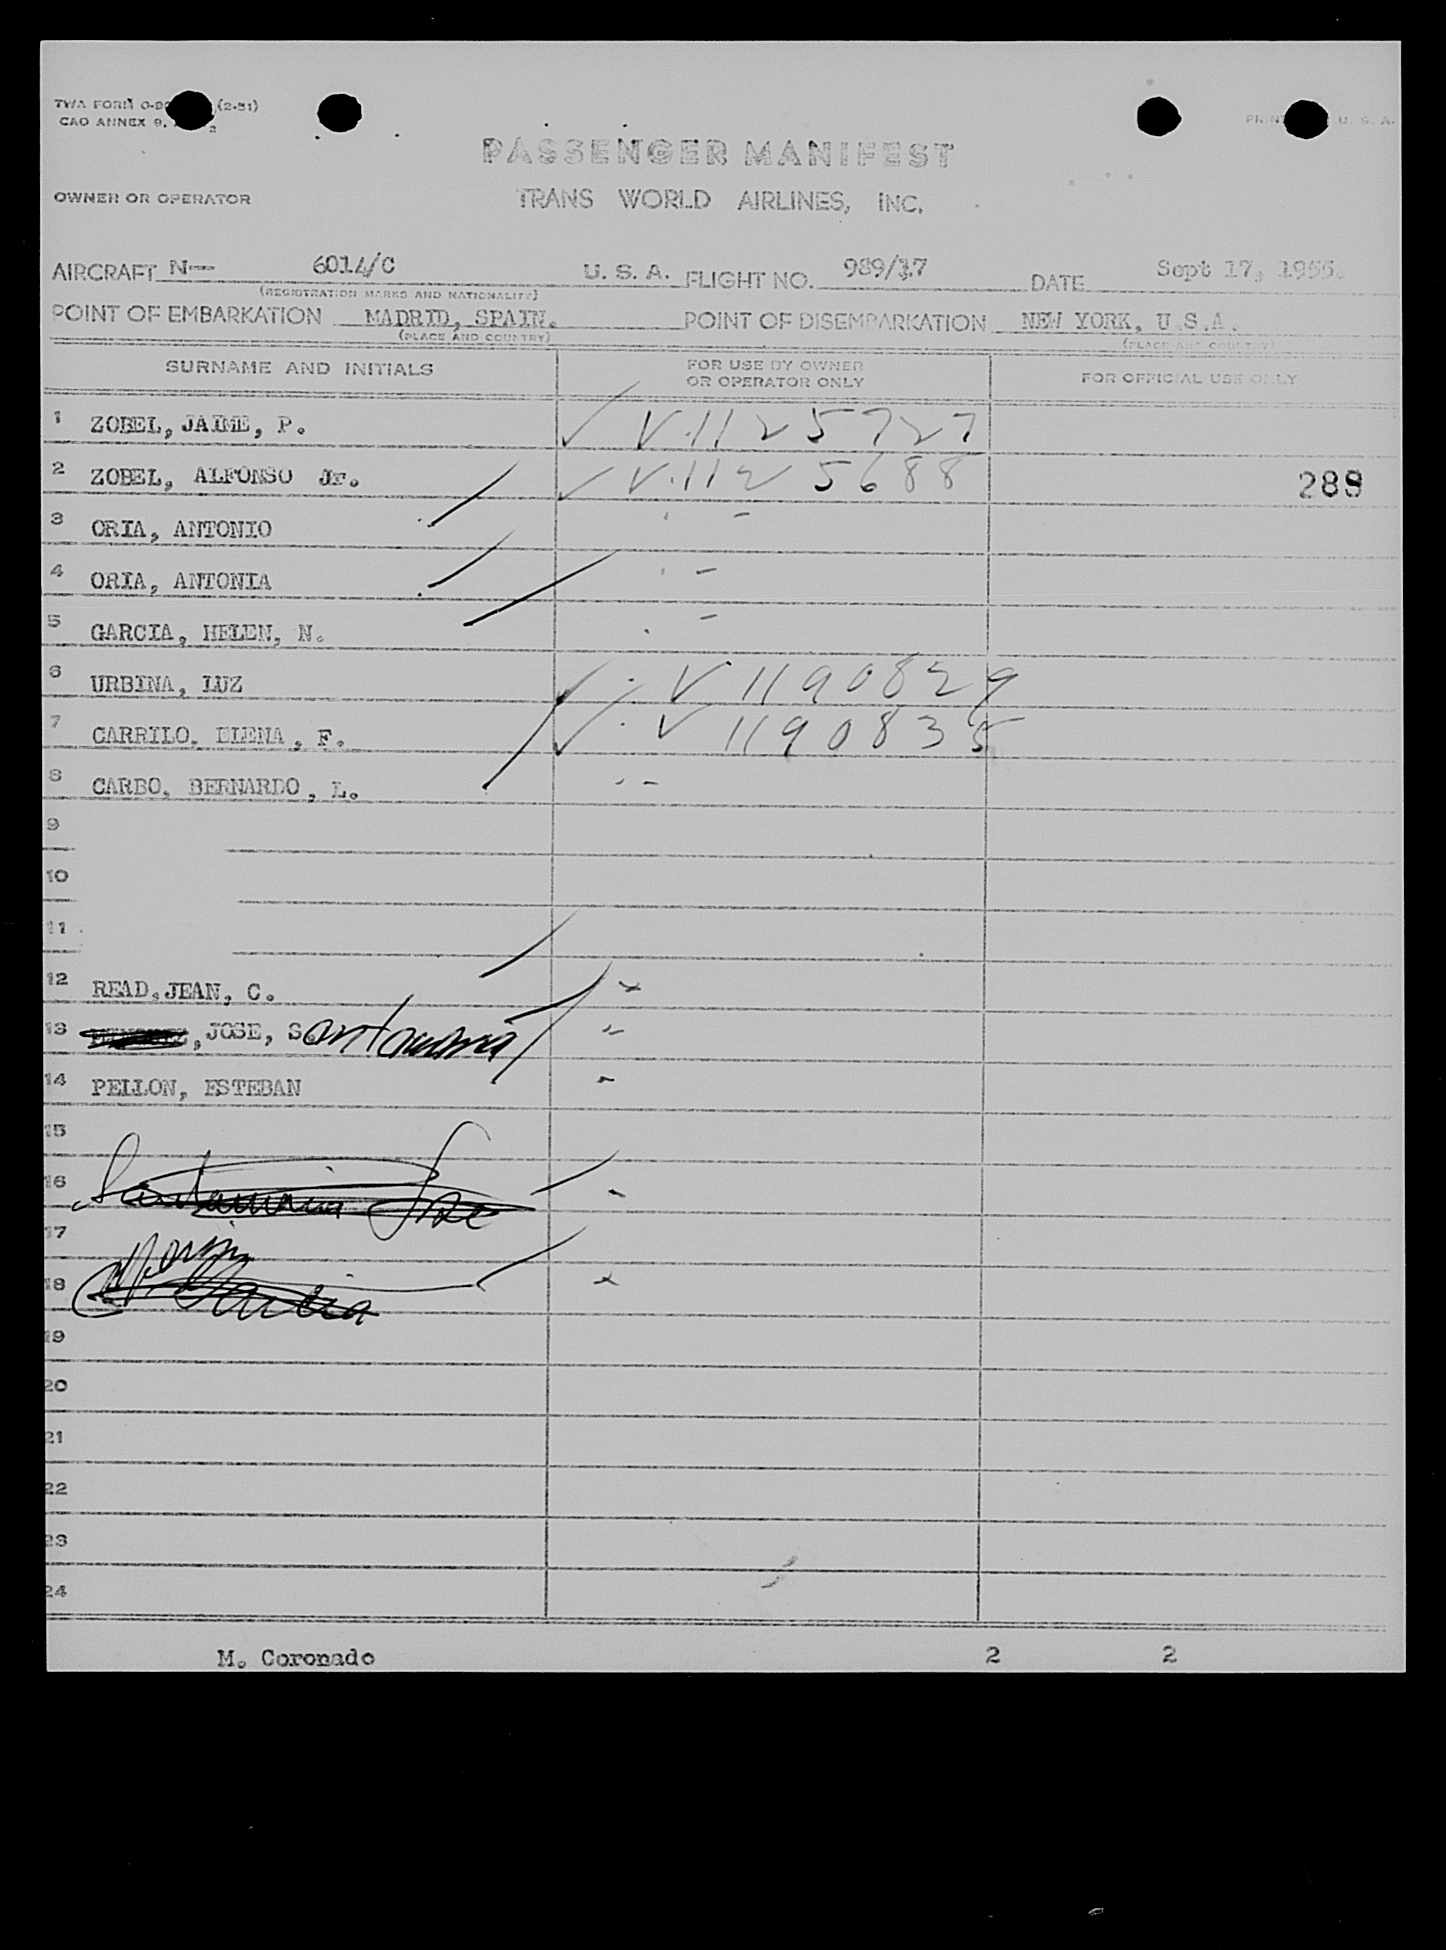 TWA FORM O-90 (2-51)
CAO ANNEX 9,
PRINT U. S. A.
PASSENGER MANIFEST
OWNER OR OPERATOR TRANS WORLD AIRLINES, INC.
AIRCRAFT N-- 6014/C U. S. A. FLIGHT NO. 989/17 DATE Sept 17, 1955.
(REGISTRATION MARKS AND NATIONALITY)
POINT OF EMBARKATION MADRID, SPAIN. POINT OF DISEMBARKATION NEW YORK, U.S.A.
(PLACE AND COUNTRY) (PLACE AND COUNTRY)
SURNAME AND INITIALS FOR USE BY OWNER OR OPERATOR ONLY FOR OFFICIAL USE ONLY
1 ZOBEL, JAIME, P. V.1125727
2 ZOBEL, ALFONSO Jr. V.1125688 289
3 ORIA, ANTONIO
4 ORIA, ANTONIA
5 GARCIA, HELEN, N.
6 URBINA, LUZ V 1190829
7 CARRILO, ELENA, F. V 1190835
8 CARBO, BERNARDO, L.
9
10
11
12 READ, JEAN, C.
13 , JOSE, Santamaria
14 PELLON, ESTEBAN
15
16 Santamaria Jose
17
18 Garcia
19
20
21
22
23
24
M. Coronado 2 2